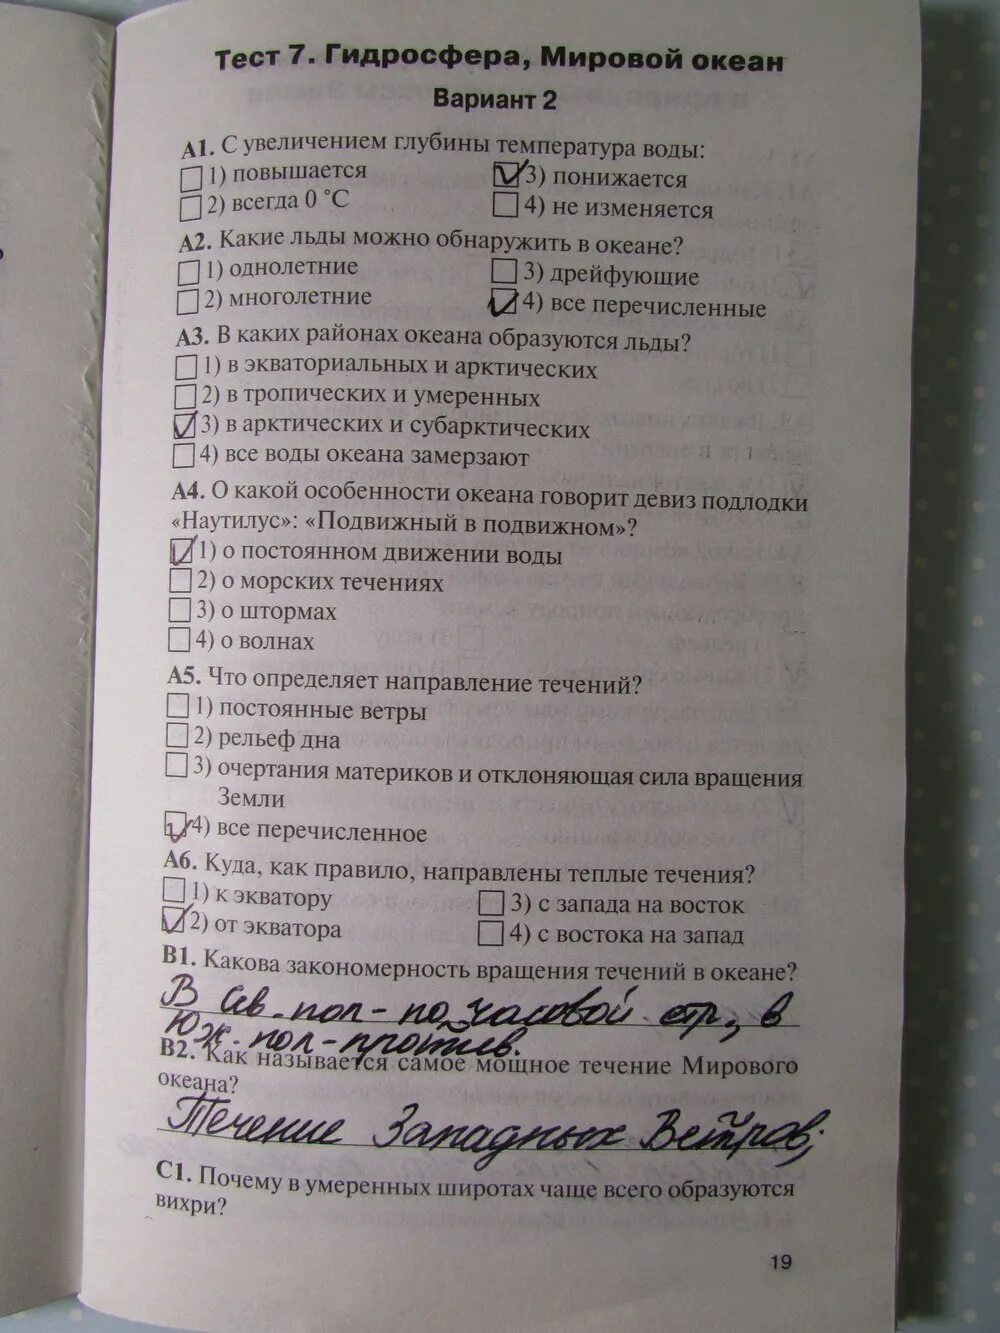 Тест 7. Гидросфера, Мировой океан
Вариант 2
А1. С увеличением глубины температура воды:
1) повышается
3) понижается
2) всегда 0 °С
4) не изменяется
А2. Какие льды можно обнаружить в океане?
1) однолетние
3) дрейфующие
2) многолетние
4) все перечисленные
А3. В каких районах океана образуются льды?
1) в экваториальных и арктических
2) в тропических и умеренных
3) в арктических и субарктических
4) все воды океана замерзают
А4. О какой особенности океана говорит девиз подлодки
«Наутилус»: «Подвижный в подвижном»?
1) о постоянном движении воды
2) о морских течениях
3) о штормах
4) о волнах
А5. Что определяет направление течений?
1) постоянные ветры
2) рельеф дна
3) очертания материков и отклоняющая сила вращения
Земли
4) все перечисленное
А6. Куда, как правило, направлены теплые течения?
1) к экватору
3) с запада на восток
2) от экватора
4) с востока на запад
В1. Какова закономерность вращения течений в океане?
В Сев. пол - по часовой стр., в
Юж. пол - против.
В2. Как называется самое мощное течение Мирового
океана?
Течение Западных Ветров;
С1. Почему в умеренных широтах чаще всего образуются
вихри?
19